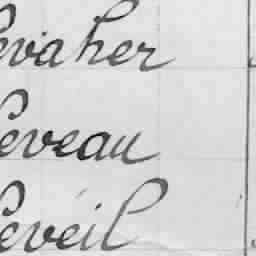 evaher
Leveau
Leveil